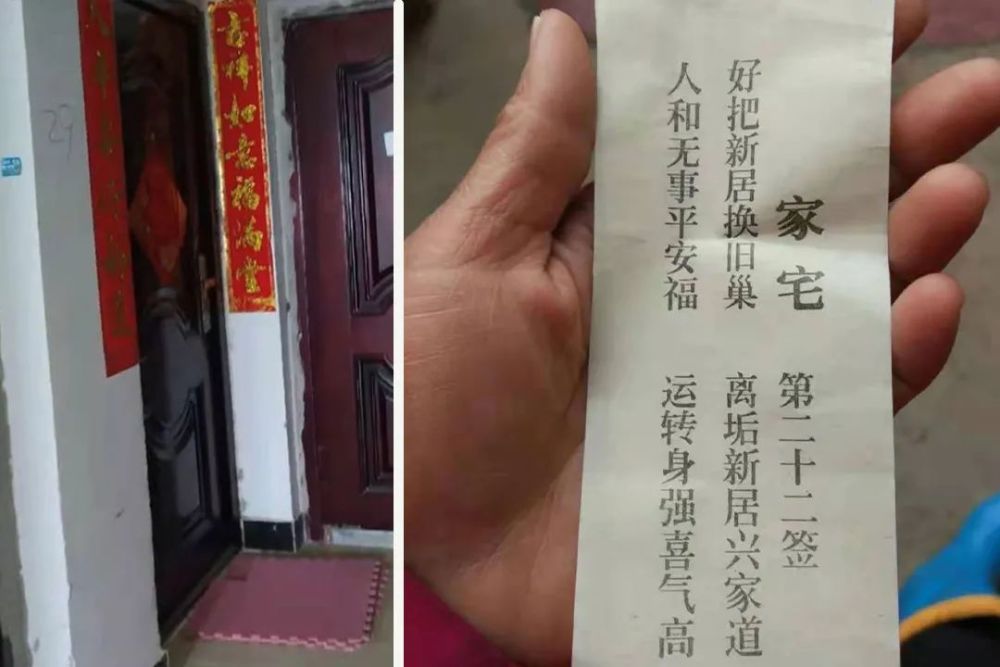 29
吉祥如意福满堂
家宅 第二十二签
好把新居换旧巢 离垢新居兴家道
人和无事平安福 运转身强喜气高